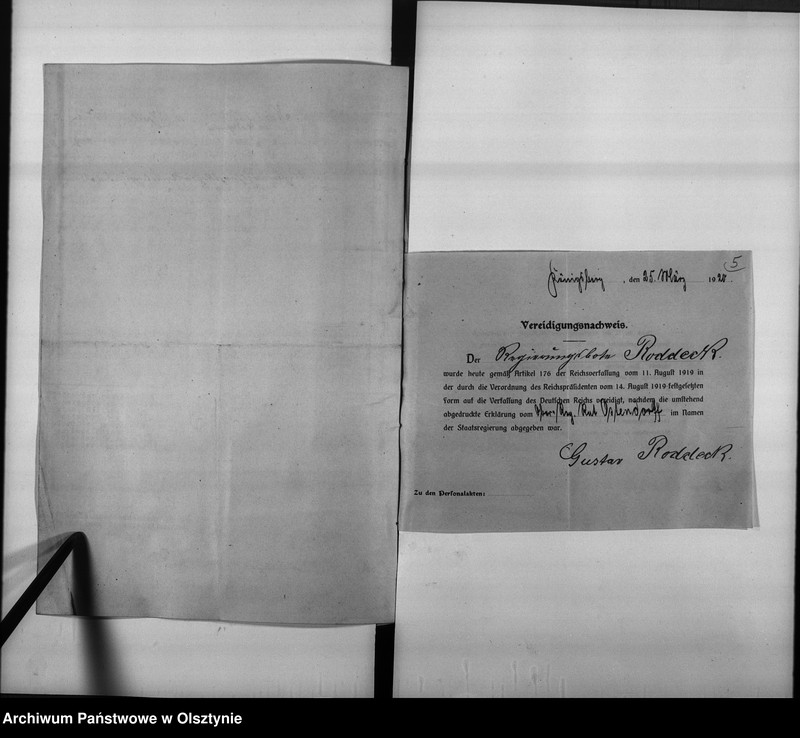 5
Königsberg, den 25. März 1920.
Vereidigungsnachweis.
Der Regierungsbote Roddeck.
wurde heute gemäß Artikel 176 der Reichsverfassung vom 11. August 1919 in
der durch die Verordnung des Reichspräsidenten vom 14. August 1919 festgesetzten
Form auf die Verfassung des Deutschen Reichs vereidigt, nachdem die umstehend
abgedruckte Erklärung vom Ober Reg. Rat im Namen
der Staatsregierung abgegeben war.
Gustav Roddeck.
Zu den Personalakten:
Archiwum Państwowe w Olsztynie